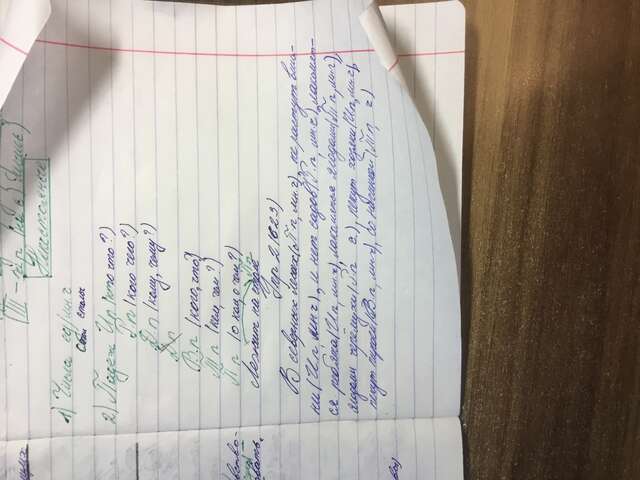 III - ж.р. (на ь) (мышь)
Непостоянные
1) Числа ед/мн.ч
стол столы
2) Падеж И.п (кто что?)
Р.п (кого чего?)
Д.п (кому, чему?)
Д.п
В.п (кого, что?)
Т.п (кем, чем?)
П.п (о ком, о чем?)
Лежит на столе П.п
Упр 2 (623)
В северных лесах (П.п, мн.ч), не растут вишни (И.п, мн.ч), и нет садов (Р.п, мн.ч), лакомят-
ся ребята (И.п, мн.ч), лакомятся ягодами (Т.п, мн.ч),
ягодами черёмухи (Р.п), пекут хозяйки (И.п, мн.ч),
пекут пироги (В.п, мн.ч), со начинкой (Т.п, ч)
вство-
овать.